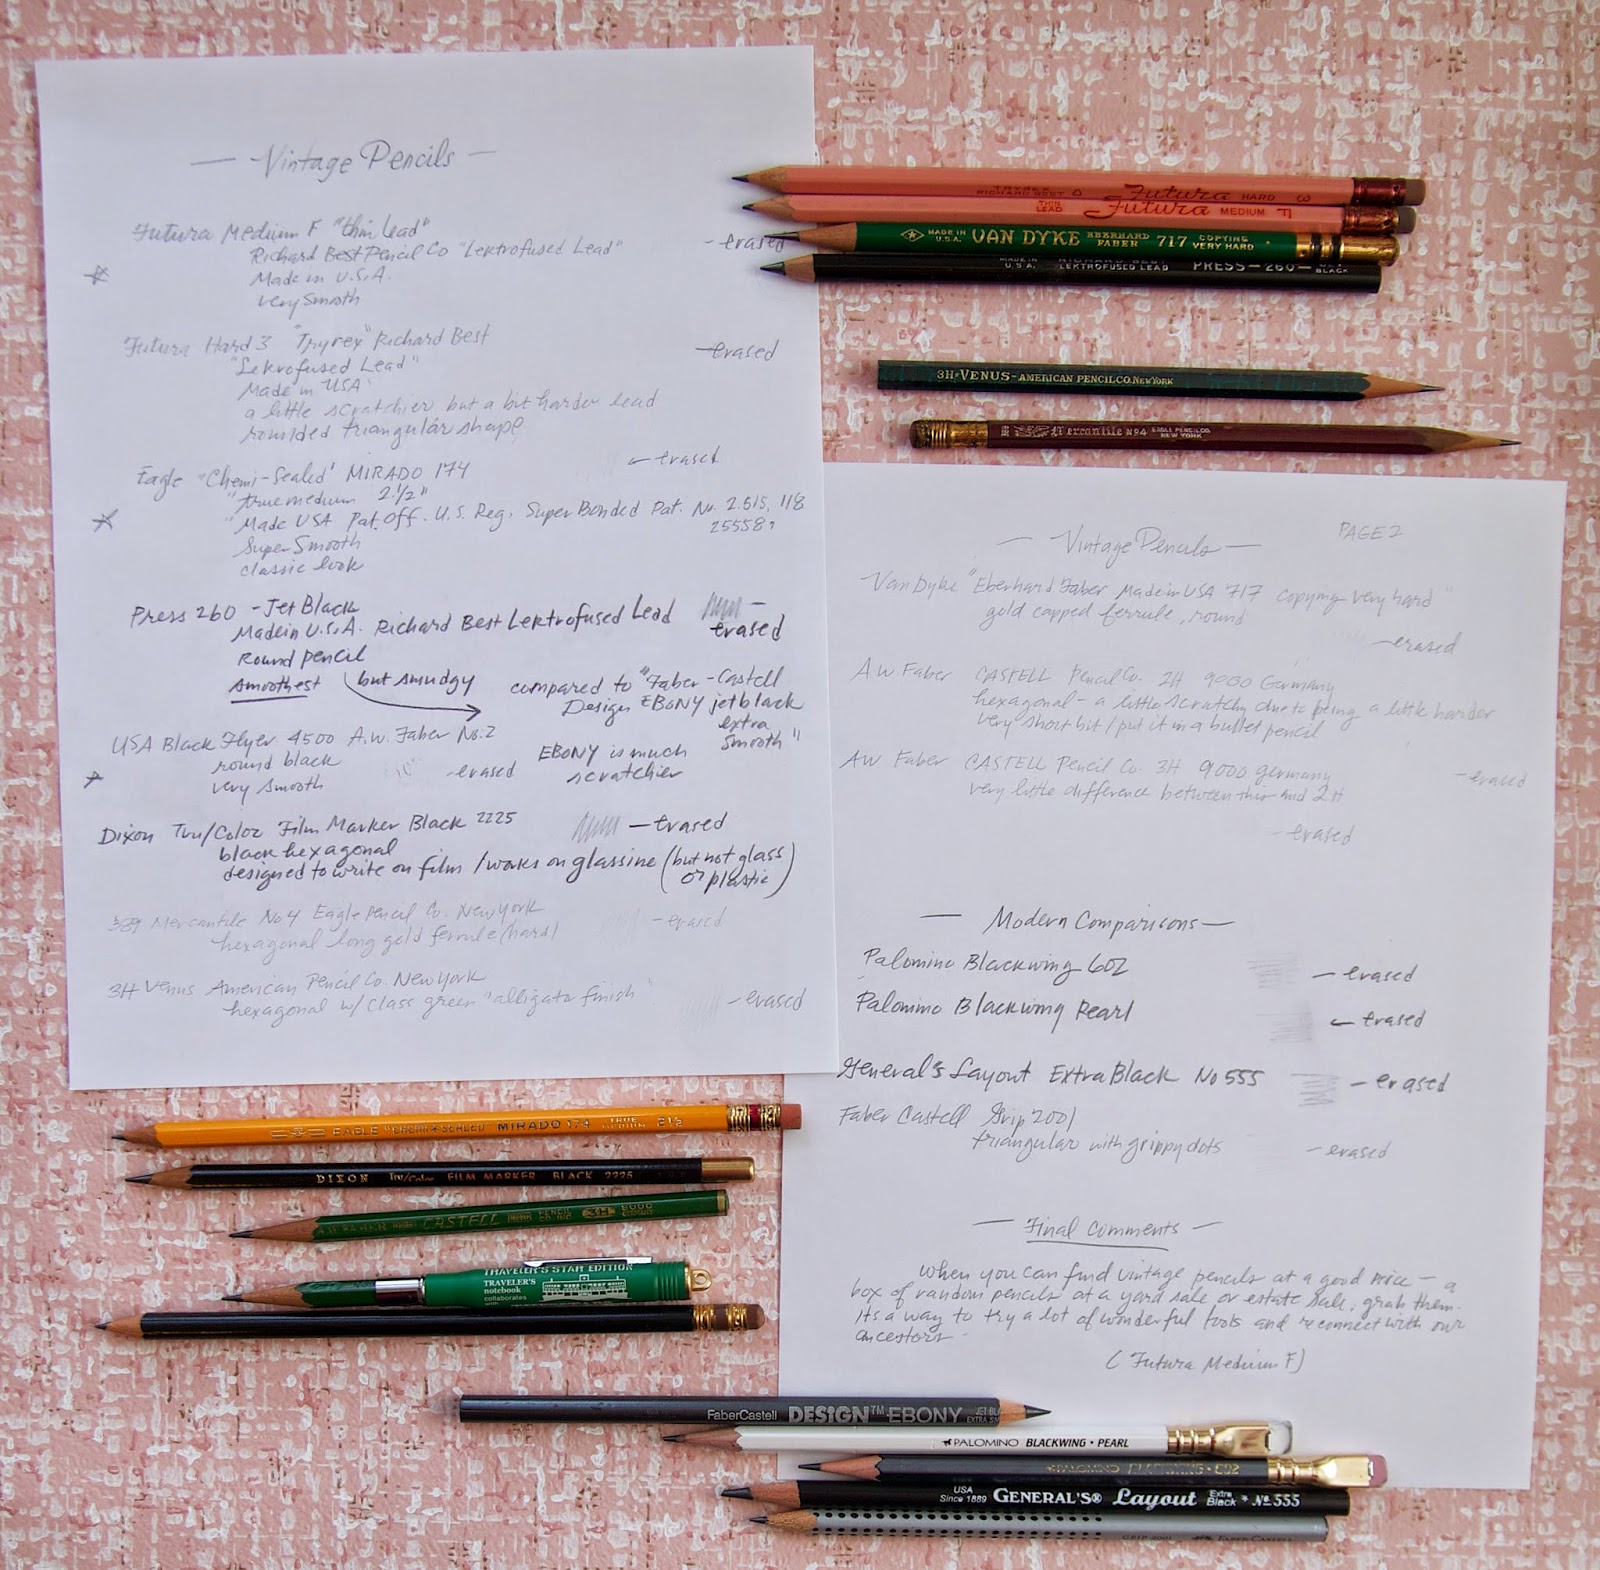 — Vintage Pencils —
Futura Medium F "thin Lead"
Richard Best Pencil Co "Lektrofused Lead" - erased
Made in U.S.A.
very smooth
Futura Hard 3 "Tryrex" Richard Best - erased
"Lekrofused Lead"
Made in USA
a little scratchier but a bit harder lead
rounded triangular shape
Eagle "Chemi-Sealed" MIRADO 174 ← erased
"true medium 2 1/2"
"Made USA Pat. Off. U.S. Reg. Super Bonded Pat. No. 2.515,118
25558
Super Smooth
classic look
Press 260 - Jet Black
Made in U.S.A. Richard Best Lektrofused Lead - erased
Round pencil
smoothest but smudgy
compared to "Faber-Castell
Design EBONY jet black
extra
smooth"
EBONY is much
scratchier
USA Black Flyer 4500 A.W. Faber No. 2
round black
very smooth - erased
Dixon Tru/Color Film Marker Black 2225 - erased
black hexagonal
designed to write on film / works on glassine (but not glass
or plastic)
389 Mercantile No 4 Eagle Pencil Co. New York - erased
hexagonal long gold ferrule (hard)
3H Venus American Pencil Co. New York
hexagonal w/ class green "alligator finish" - erased
TRYREX
RICHARD BEST
Futura HARD 3
THIN
LEAD
Futura MEDIUM F
MADE IN
U.S.A.
VAN DYKE EBERHARD
FABER 717 COPYING
VERY HARD
MADE IN
U.S.A.
RICHARD BEST
LEKTROFUSED LEAD PRESS-260-JET
BLACK
3H-VENUS-AMERICAN PENCIL CO. NEW YORK
Mercantile No 4 EAGLE PENCIL CO.
NEW YORK
— Vintage Pencils — PAGE 2
Van Dyke "Eberhard Faber Made in USA 717 copying very hard"
gold capped ferrule, round
- erased
A W Faber CASTELL Pencil Co. 2H 9000 Germany
hexagonal - a little scratchy due to being a little harder
very short bit / put it in a bullet pencil
AW Faber CASTELL Pencil Co. 3H 9000 germany - erased
very little difference between this and 2H
- erased
— Modern Comparisons —
Palomino Blackwing 602 - erased
Palomino Blackwing Pearl ← erased
General's Layout Extra Black No 555 - erased
Faber Castell Grip 2001
triangular with grippy dots - erased
— Final Comments —
When you can find vintage pencils at a good price — a
box of random pencils at a yard sale or estate sale, grab them.
Its a way to try a lot of wonderful tools and reconnect with our
ancestors.
(Futura Medium F)
EAGLE "CHEMI SEALED" MIRADO 174 TRUE
MEDIUM 2½
DIXON Tru/Color FILM MARKER BLACK 2225
A.W. FABER CASTELL PENCIL
CO. INC. 3H 9000
GERMANY
TRAVELER'S STAR EDITION
TRAVELER'S
notebook
collaborates
with
FaberCastell DESIGN™ EBONY JET BLA
EXTRA SM
PALOMINO BLACKWING • PEARL
PALOMINO BLACKWING 602
USA
Since 1889 GENERAL'S® Layout Extra
Black * No 555
GRIP 2001 FABER-CASTELL